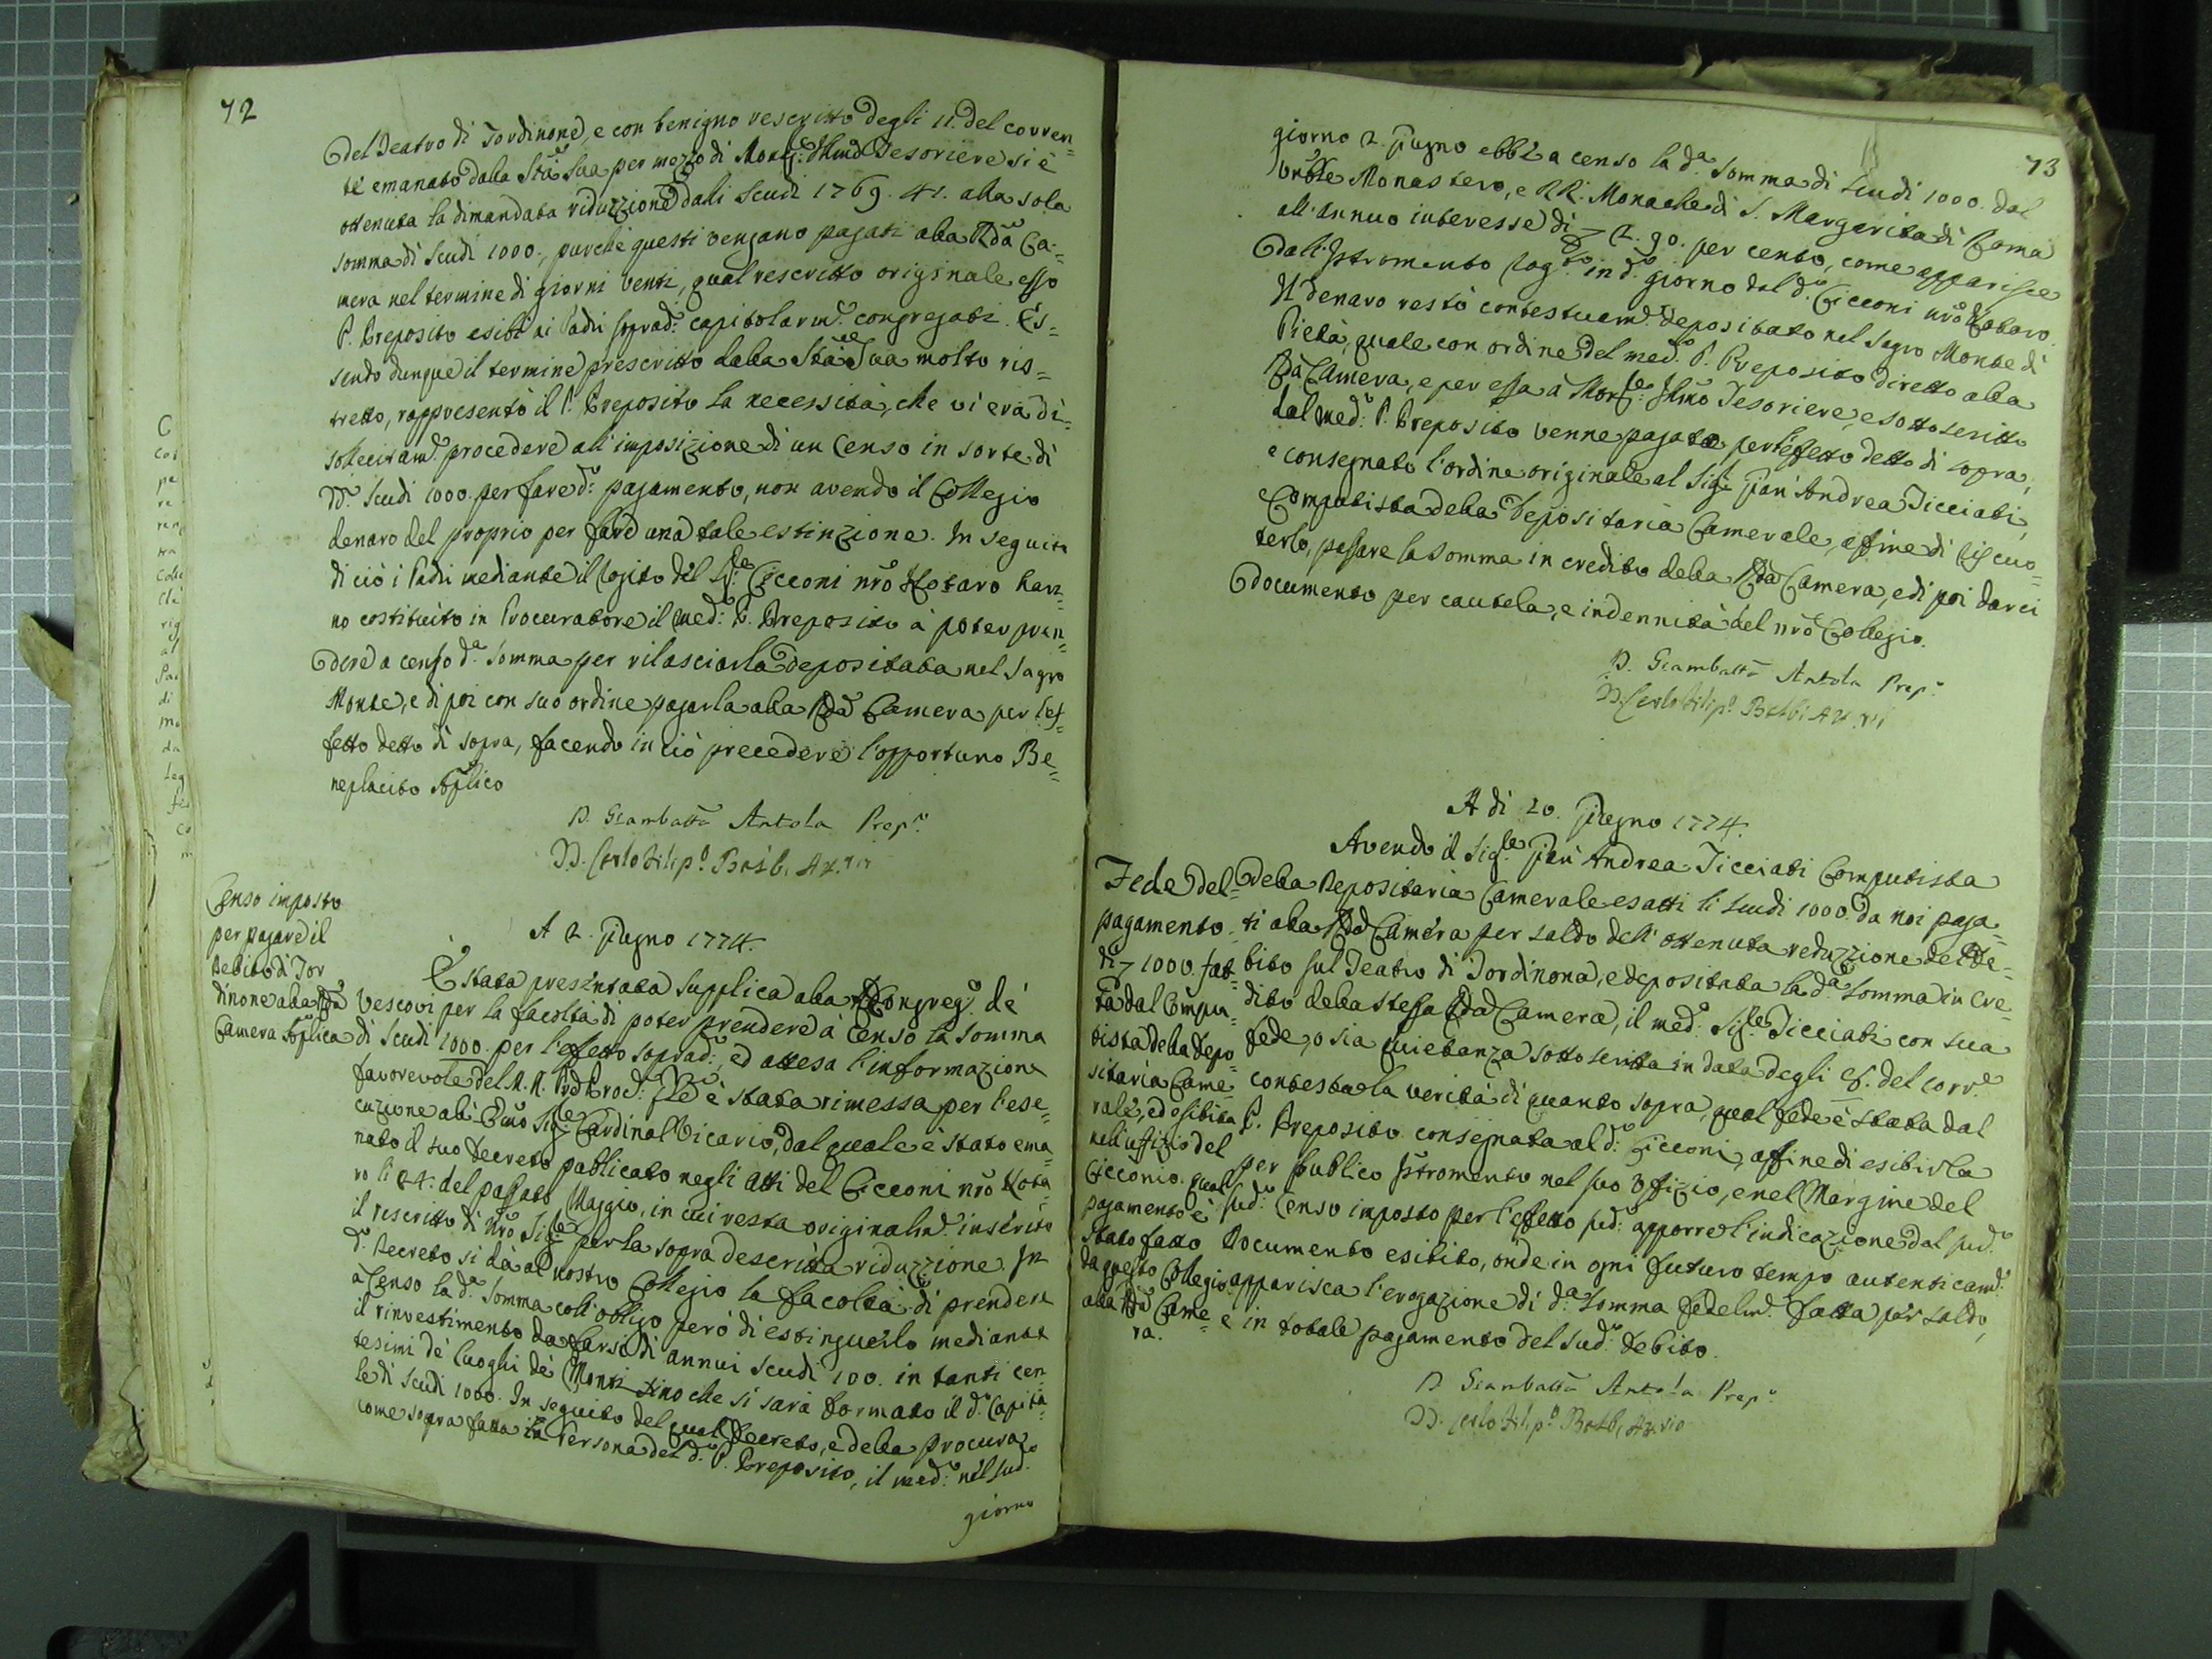 72
del Teatro di Tordinone, e con benigno rescritto degli 11. del corren=
te emanato dalla Stà Sua per mezzo di Monsig.e Illmo Tesoriere si è
ottenuta la dimandata riduzzione dalli Scudi 1769. 41. alla sola
somma di Scudi 1000., purchè questi vengano pagati alla Rda Ca=
mera nel termine di giorni venti, qual rescritto originale esso
P. Preposito esibì ai Padri soprad.i capitolarm.e congregati. Es=
sendo dunque il termine prescritto dalla Stà Sua molto ris=
tretto, rappresentò il P. Preposito la necessità, che vi era di
sollecitam.e procedere all'imposizione di un Censo in sorte di
dd.i Scudi 1000. per fare d.o pagamento, non avendo il Collegio
denaro del proprio per fare una tale estinzione. In seguito
di ciò i Padri mediante il rogito del Sig.e Cicconi nrõ Notaro han=
no costituito in Procuratore il med.o P. Preposito à poter pren=
dere a censo d.a somma per rilasciarla depositata nel Sagro
Monte, e di poi con suo ordine pagarla alla Rda Camera per l'ef=
fetto detto di sopra, facendo in ciò precedere l'opportuno Be=
neplacito Aplico
D. Giambatta Antola Prep.o
D. Carlo Filip.o
Censo imposto
per pagare il
debito di Tor
dinone alla Rda
Camera Aplica
A 2. Giugno 1774.
È stata presentata supplica alla Congreg.e de'
Vescovi per la facoltà di poter prendere à Censo la somma
di Scudi 1000. per l'effetto soprad.o, ed attesa l'informazione
favorevole del R. P. Proc. è stata rimessa per l'ese=
cuzione all' Emo Sig.e Cardinal Vicario, dal quale è stato ema=
nato il suo decreto publicato negli Atti del Cicconi nrõ Nota=
ro li 24. del passato Maggio, in cui resta originalm.e inserito
il rescritto di Nrõ Sig.e per la sopra descritta riduzzione. In
d.o Decreto si dà al nostro Collegio la facoltà di prendere
a Censo la d.a somma coll'obligo però di estinguerlo mediante
il rinvestimento da farsi di annui scudi 100. in tanti cen=
tesimi de' luoghi de' Monti sino che si sarà formato il d.o Capita=
le di Scudi 1000. In seguito del qual Decreto, e della Procura
come sopra fatta in Persona del d.o P. Preposito, il med.o nel sud.o
giorno
73
giorno 2. Giugno ebbe a censo la d.a somma di Scudi 1000. dal
Monastero, e RR. Monache di S. Margerita di Roma
all'annuo interesse di 2. 90. per cento, come apparisce
dall'Istromento rog.to in d.o giorno dal d.o Cicconi nrõ Notaro.
Il denaro restò contestuam.e depositato nel Sagro Monte di
Pietà, quale con ordine del med.o P. Preposito diretto alla
Rda Camera, e per essa à Monsig.e Illmo Tesoriere, e sottoscritto
dal med.o P. Preposito venne pagato per l'effetto detto di sopra,
e consegnato l'ordine originale al Sig.e Gian Andrea Ticciati
Computista della Depositaria Camerale, affine di riscuo=
terlo, passare la somma in credito della Rda Camera, e di poi darci
documento per cautela, e indennità del nrõ Collegio.
D. Giambatta Antola Prep.o
D. Carlo Filip.o
A di 20. Giugno 1774.
Avendo il Sig.e Gian Andrea Ticciati Computista
della Depositaria Camerale esatti li Scudi 1000. da noi paga=
ti alla Rda Camera per saldo dell'ottenuta reduzzione del De=
bito sul Teatro di Tordinona, e depositata la d.a somma in Cre=
dito della stessa Rda Camera, il med.o Sig.e Ticciati con sua
fede, o sia quietanza sottoscritta in data degli 8. del corr.e
contesta la verità di quanto sopra, qual fede è stata dal
P. Preposito consegnata al d.o Cicconi, affine di esibirla
per publico Istromento nel suo Offizio, e nel Margine del
sud.o Censo imposto per l'effetto sud.o apporre l'indicazione dal sud.o
Documento esibito, onde in ogni futuro tempo autenticam.e
apparisca l'erogazione di d.a somma fedelm.e fatta per saldo,
e in totale pagamento del sud.o debito.
Fede del
pagamento
di 1000. fat=
ta dal Compu=
tista della Depo
sitaria Came=
rale, ed esibita
nell'uffizio del
Cicconio. qual
pagamento è
stato fatto
da questo Collegio
alla Rda Came=
ra.
D. Giambatta Antola Prep.o
D. Carlo Filip.o